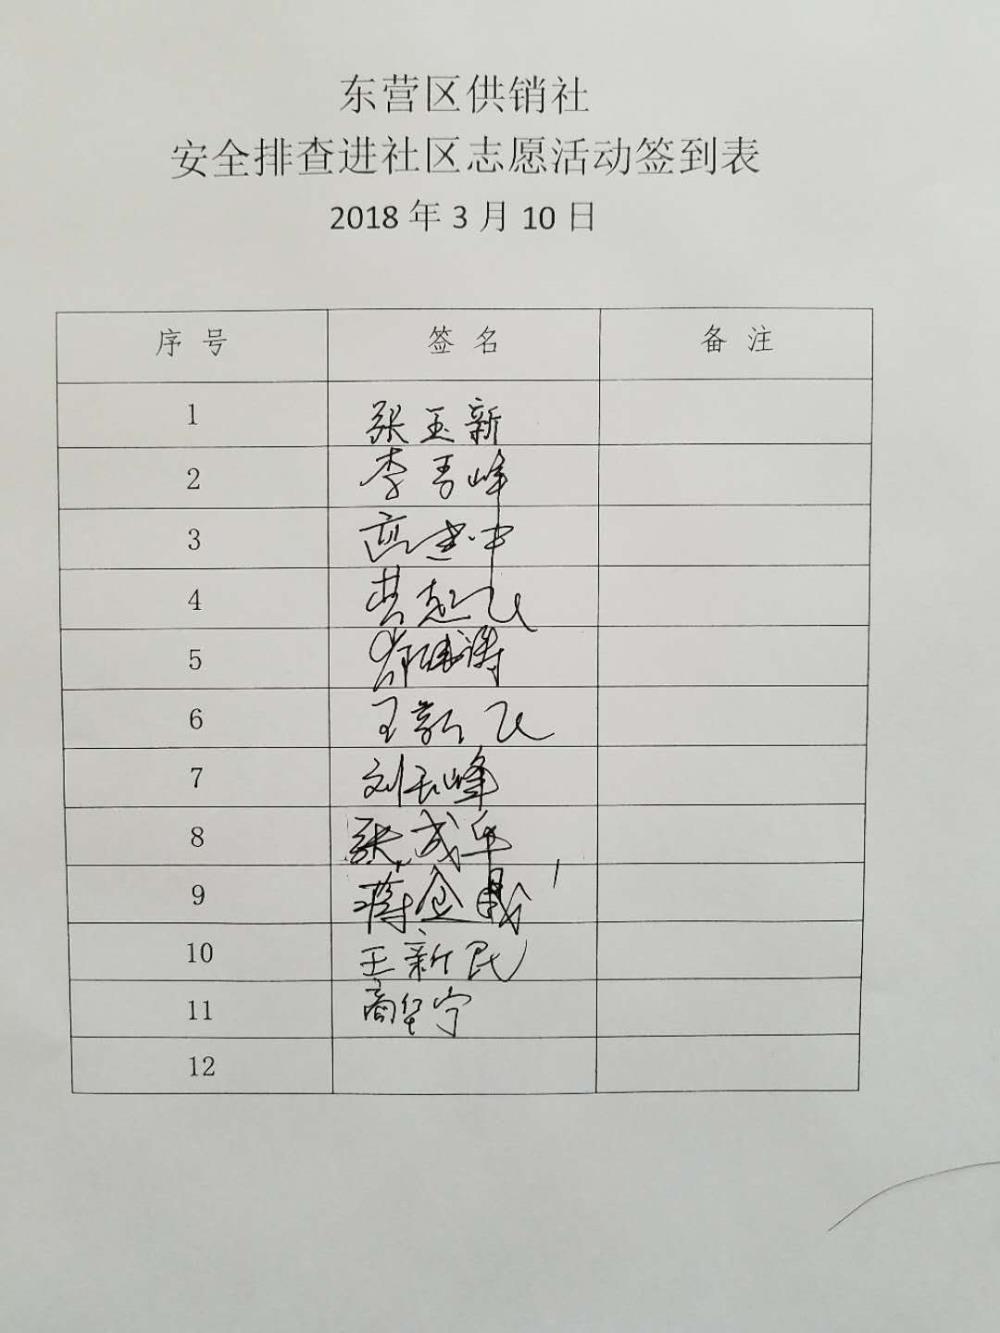 东营区供销社
安全排查进社区志愿活动签到表
2018年3月10日
序号 签名 备注
1 张玉新
2 李秀峰
3
4
5
6 王新飞
7 刘玉峰
8 张成军
9
10 王新民
11
12